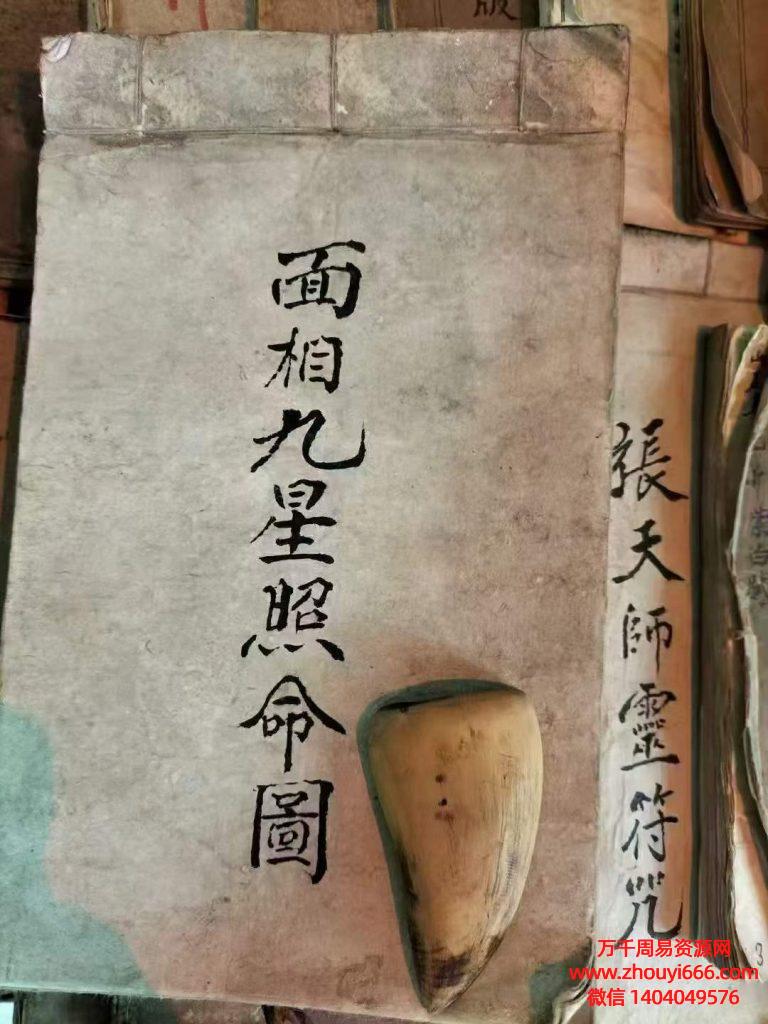 面相九星照命圖
張天師靈符咒
版
万千周易资源网
www.zhouyi666.com
微信 1404049576